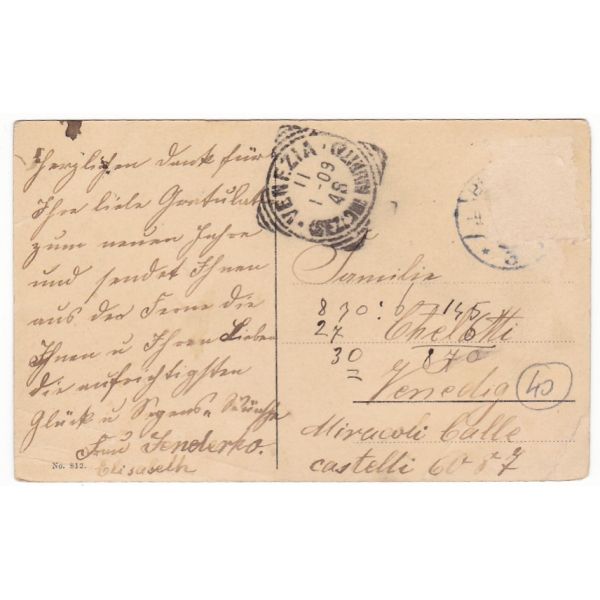 Herzlichen Dank für
Ihre liebe Gratulat
zum neuen Jahre
und sendet Ihnen
aus der Ferne die
Ihnen u Ihren Lieben
die aufrichtigsten
Glück u Segens-Wünsche
Frau Senderko.
Elisabeth
No. 812.
VENEZIA
11
1-09
Familie
870:6 145
27
Chelotti 6
30 870
Venedig
40
Miracoli Calle
castelli 60 7